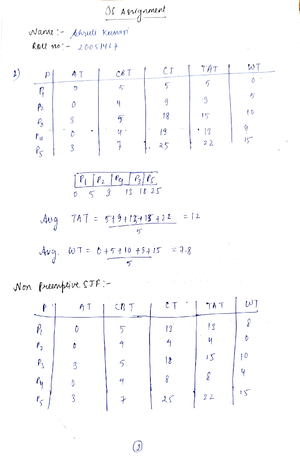 OS Assignment
Name :-
Roll no :-
1)
P AT CBT CT TAT WT
P1 0 5 5 5 0
P2 0 4 9 9 5
P3 3 5 18 15 10
P4 0 4 13 13 9
P5 3 7 25 22 15
P1 P2 P4 P3 P5
0 5 9 13 18 25
Avg TAT = = 12
5
Avg. WT = 0+5+10+9+15 = 7.8
5
Non Preemptive SJF :-
P AT CBT CT TAT WT
P1 0 5 13 13 8
P2 0 4 4 4 0
P3 3 5 18 15 10
P4 0 4 8 8 4
P5 3 7 25 22 15